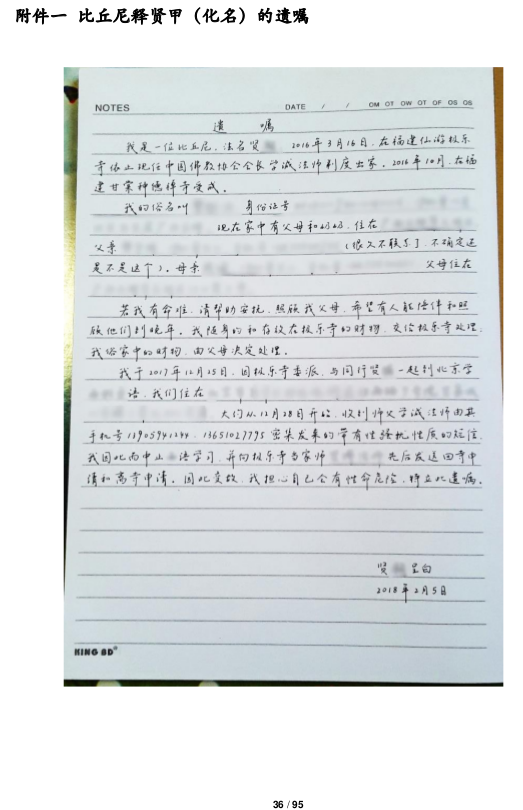 附件一 比丘尼释贤甲（化名）的遺嘱
NOTES DATE / / OM OT OW OT OF OS OS
遺 嘱
我是一位比丘尼，法名贤 2016年3月16日，在福建仙游极乐
寺依止现任中国佛教协会会长学诚法师剃度出家。2016年10月，在福
建甘露神德禅寺受戒。
我的俗名叫 身份证号
现在家中有父母和妈妈，住在
父亲 (很久不联系了，不确定还
是不是这个)，母亲 父母住在
若我有命难，请帮助安抚、照顾我父母，希望有人能陪伴和照
顾他们到晚年。我随身的和存放在极乐寺的财物，交给极乐寺处理，
我俗家中的财物，由父母决定处理。
我于2017年12月25日，因极乐寺委派，与同行贤 一起到北京学
语，我们住在
大约从12月28日开始，收到师父学诚法师由其
手机号 密集发来的带有性骚扰性质的短信，
我因此而中止 语学习，并向极乐寺当家师 先后发送回寺申
请和离寺申请。因此变故，我担心自己会有性命危险，特立此遺嘱。
贤 呈白
2018年2月5日
KING BD®
36 / 95